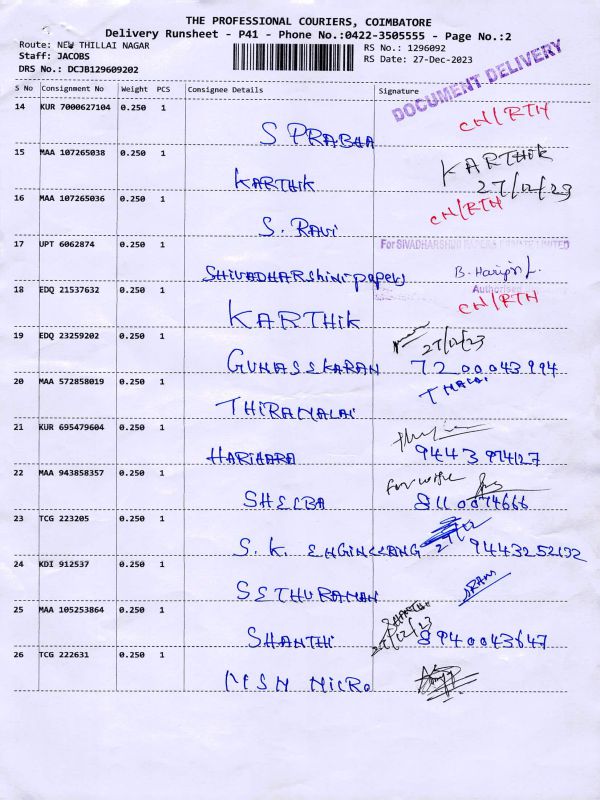 THE PROFESSIONAL COURIERS, COIMBATORE
Delivery Runsheet - P41 - Phone No.:0422-3505555 - Page No.:2
Route: NEW THILLAI NAGAR
RS No.: 1296092
Staff: JACOBS
RS Date: 27-Dec-2023
DRS No.: DCJB129609202
DOCUMENT DELIVERY
S No Consignment No Weight PCS Consignee Details Signature
14 KUR 7000627104 0.250 1
S PRABHA CN/RTN
15 MAA 107265038 0.250 1
KARTHIK KARTHIK
27/12/23
16 MAA 107265036 0.250 1
S. Ravi CN/RTN
17 UPT 6062874 0.250 1
For SIVADHARSHINI PAPERS PRIVATE LIMITED
SHIVADHARShini papers
18 EDQ 21537632 0.250 1
KARTHIK CN/RTN
19 EDQ 23259202 0.250 1
27/12/23
GUNASEKARAN 7200043994
20 MAA 572858019 0.250 1
THIRAMALAI
21 KUR 695479604 0.250 1
HARIHARA 9443974127
22 MAA 943858357 0.250 1
SHELBA 8110074666
23 TCG 223205 0.250 1
S. K. 9443252192
24 KDI 912537 0.250 1
SETHURAMAN
25 MAA 105253864 0.250 1
27/12/23
SHANTHI 8940043647
26 TCG 222631 0.250 1
MSN MICRO